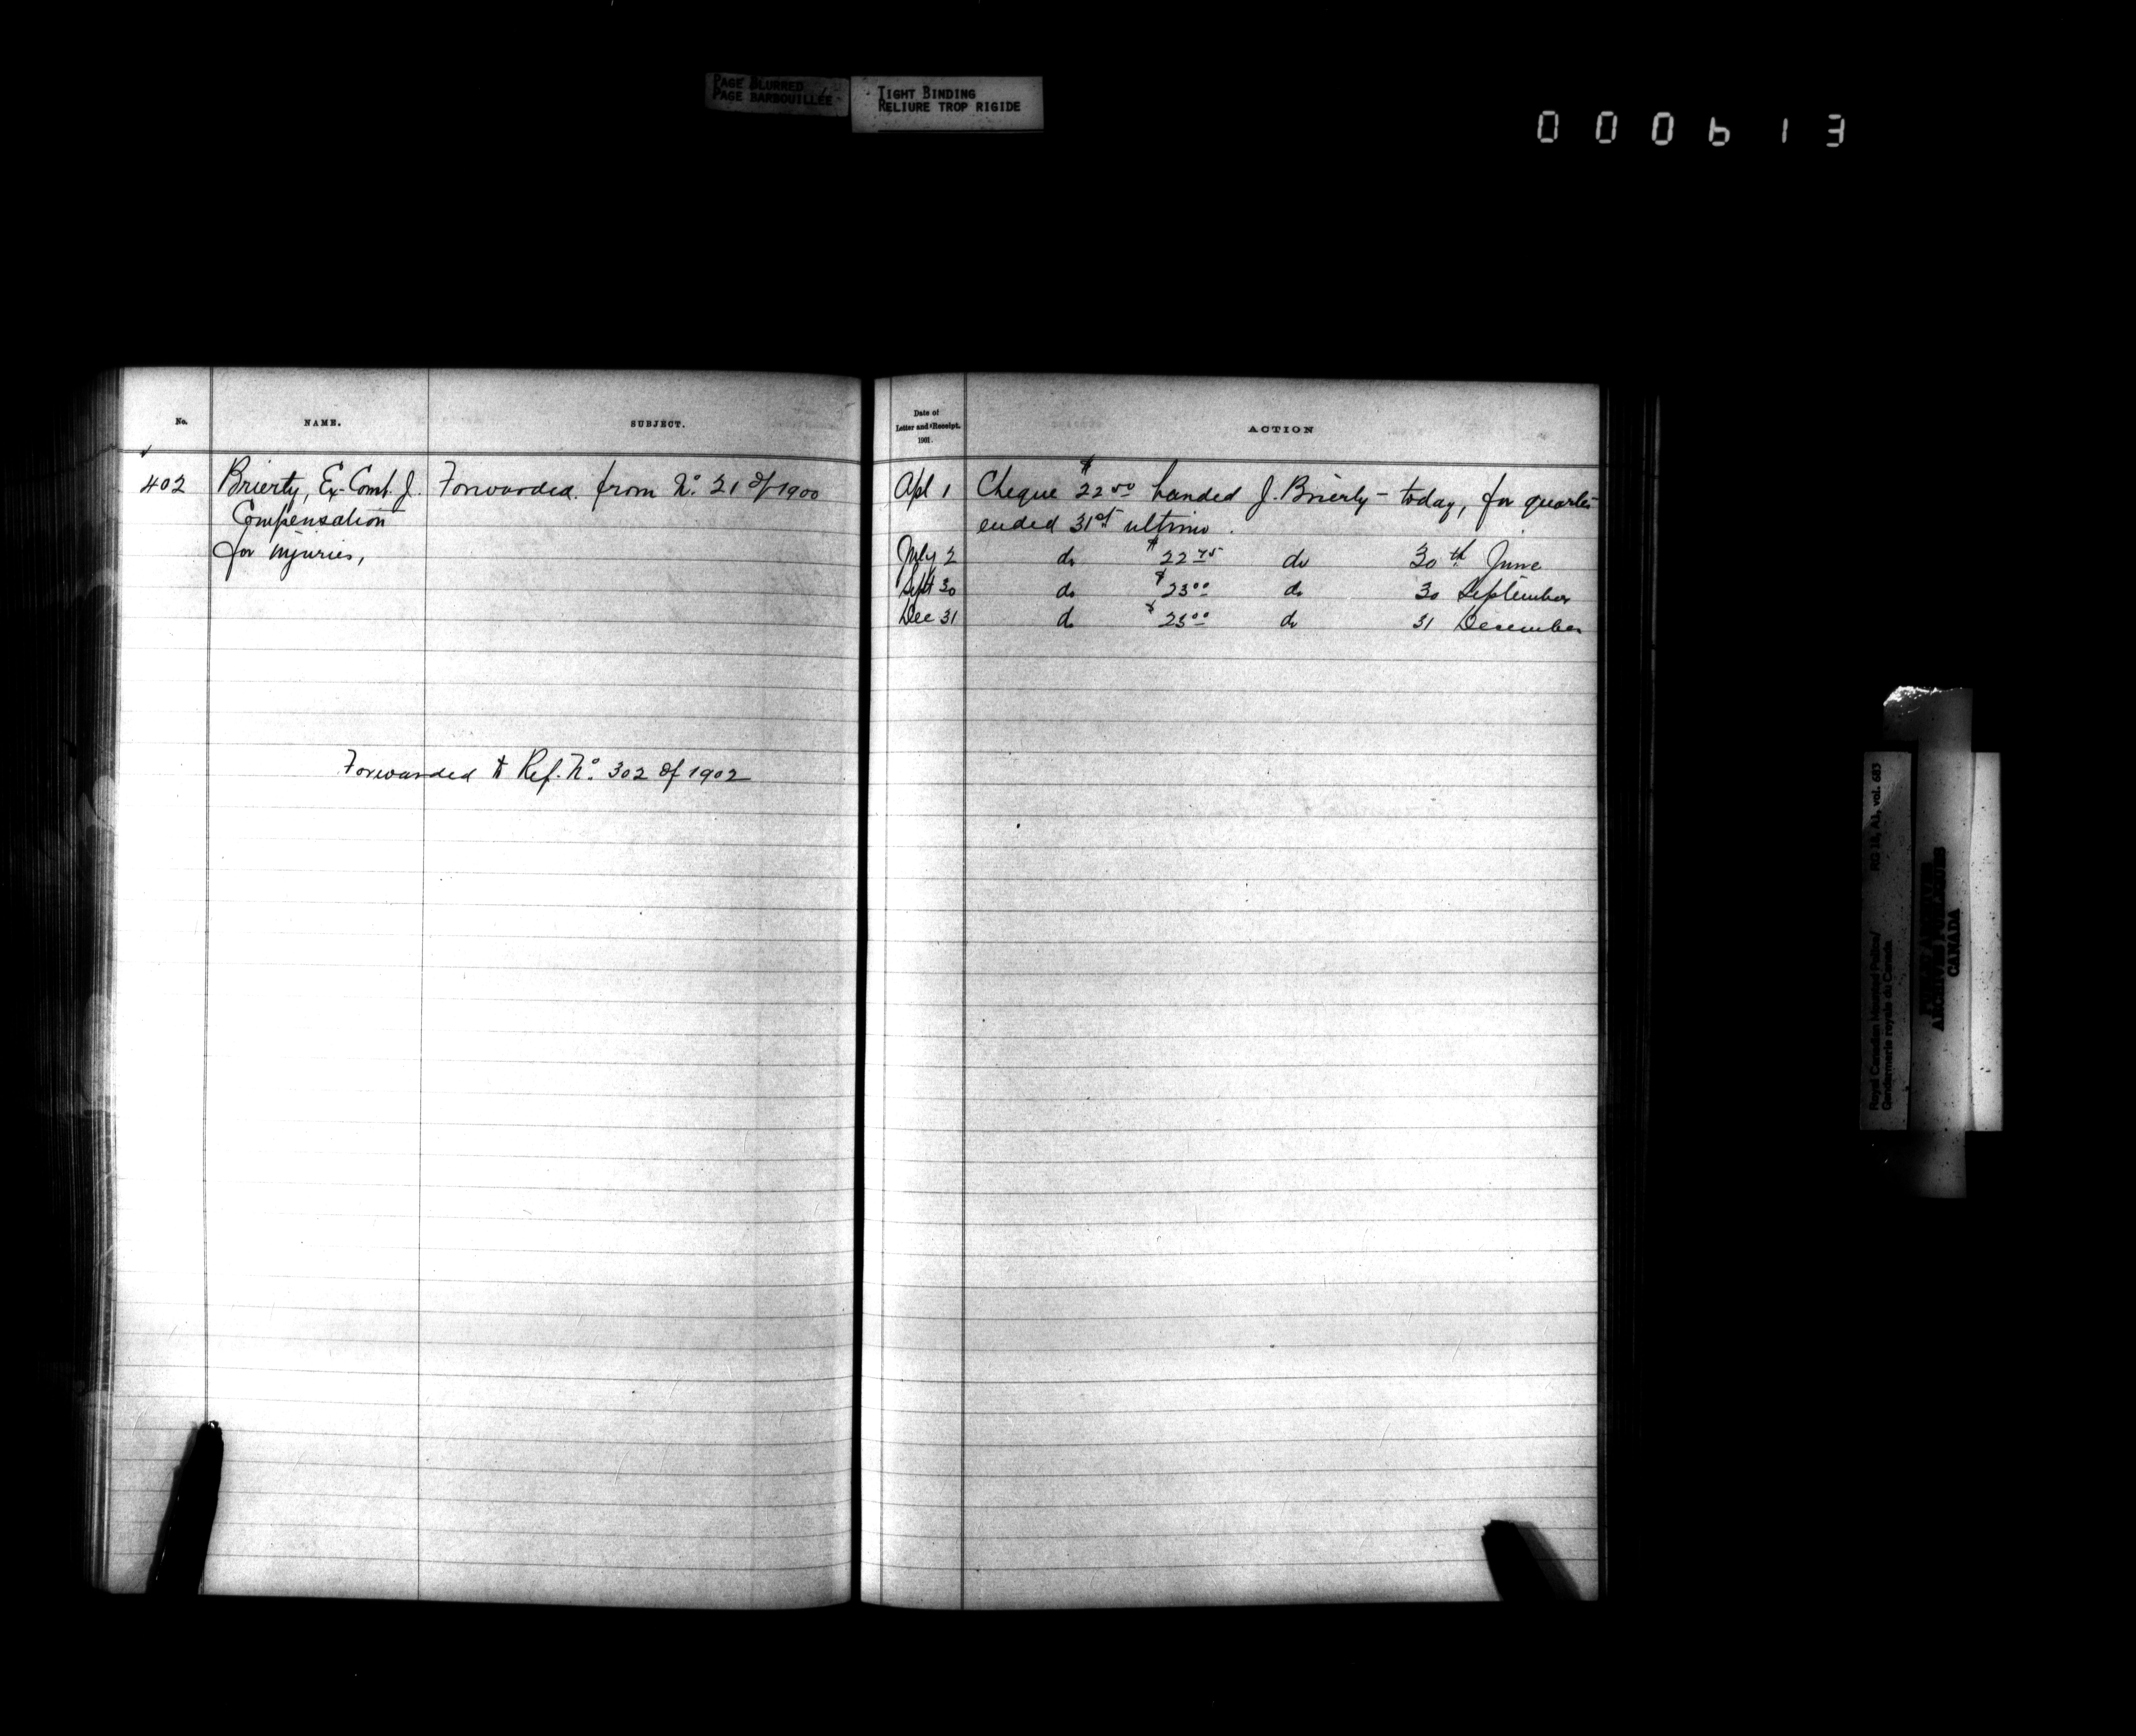 PAGE BLURRED
PAGE BARBOUILLÉE
TIGHT BINDING
RELIURE TROP RIGIDE
000613
No.
NAME.
SUBJECT.
402
Brierty, Ex-Const. J.
Forwarded from No. 21 of 1900
Compensation
for injuries,
Forwarded to Ref. No. 302 of 1902
Date of
Letter and Receipt.
1901.
ACTION
Apl 1 Cheque $22 50 handed J. Brierly - today, for quarter
ended 31st ultimo.
July 2 do $22 75 do 30th June
Sept 30 do $23 00 do 30 September
Dec 31 do $23 00 do 31 December
Royal Canadian Mounted Police/ RG 18, A1, vol. 683
Gendarmerie royale du Canada
PUBLIC ARCHIVES
ARCHIVES PUBLIQUES
CANADA